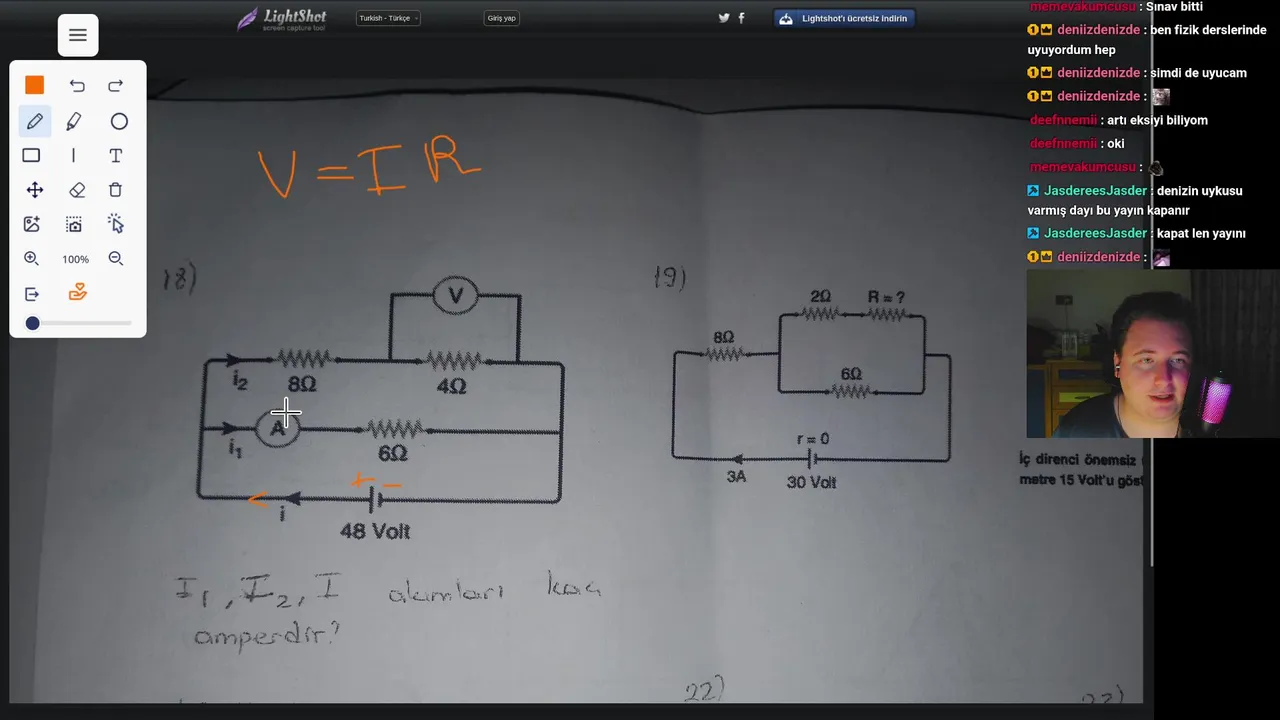 LightShot
screen capture tool
Turkish - Türkçe
Giriş yap
Lightshot'ı ücretsiz indirin
100%
V = I R
18)
V
i₂
8Ω
4Ω
A
i₁
6Ω
+ -
i
48 Volt
I₁, I₂, I akımları kaç
amperdir?
19)
2Ω
R = ?
8Ω
6Ω
r = 0
3A
30 Volt
İç direnci önemsiz
metre 15 Volt'u göst
22)
memevakumcusu : Sınav bitti
deniizdenizde : ben fizik derslerinde
uyuyordum hep
deniizdenizde : simdi de uyucam
deniizdenizde :
deefnnemii : artı eksiyi biliyom
deefnnemii : oki
memevakumcusu :
JasdereesJasder : denizin uykusu
varmış dayı bu yayın kapanır
JasdereesJasder : kapat len yayını
deniizdenizde :